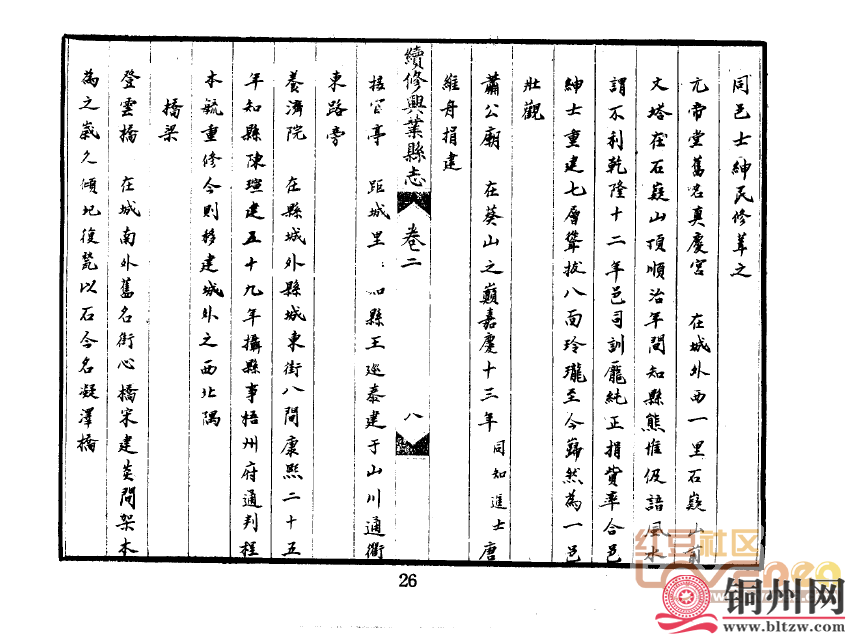 同邑士紳民修葺之
元帝堂舊名真慶宮 在城外西一里石嶷山前
文塔在石嶷山頂順治年間知縣熊惟伋語風水
謂不利乾隆十二年邑司訓龐純正捐貲率合邑
紳士重建七層聳拔八面玲瓏至今巋然為一邑
壯觀
蕭公廟 在葵山之巔嘉慶十三年同知進士唐
維舟捐建
續修興業縣志 卷二 八
接官亭 距城里 知縣王巡泰建于山川通衢
東路旁
養濟院 在縣城外縣城東街八間康熙二十五
年知縣陳瑄建五十九年攝縣事梧州府通判程
本毓重修今則移建城外之西北隅
橋梁
登雲橋 在城南外舊名街心橋宋建炎間架木
為之歲久傾圮復甃以石今名凝澤橋
26
红豆社区
铜州网
www.bltzw.com